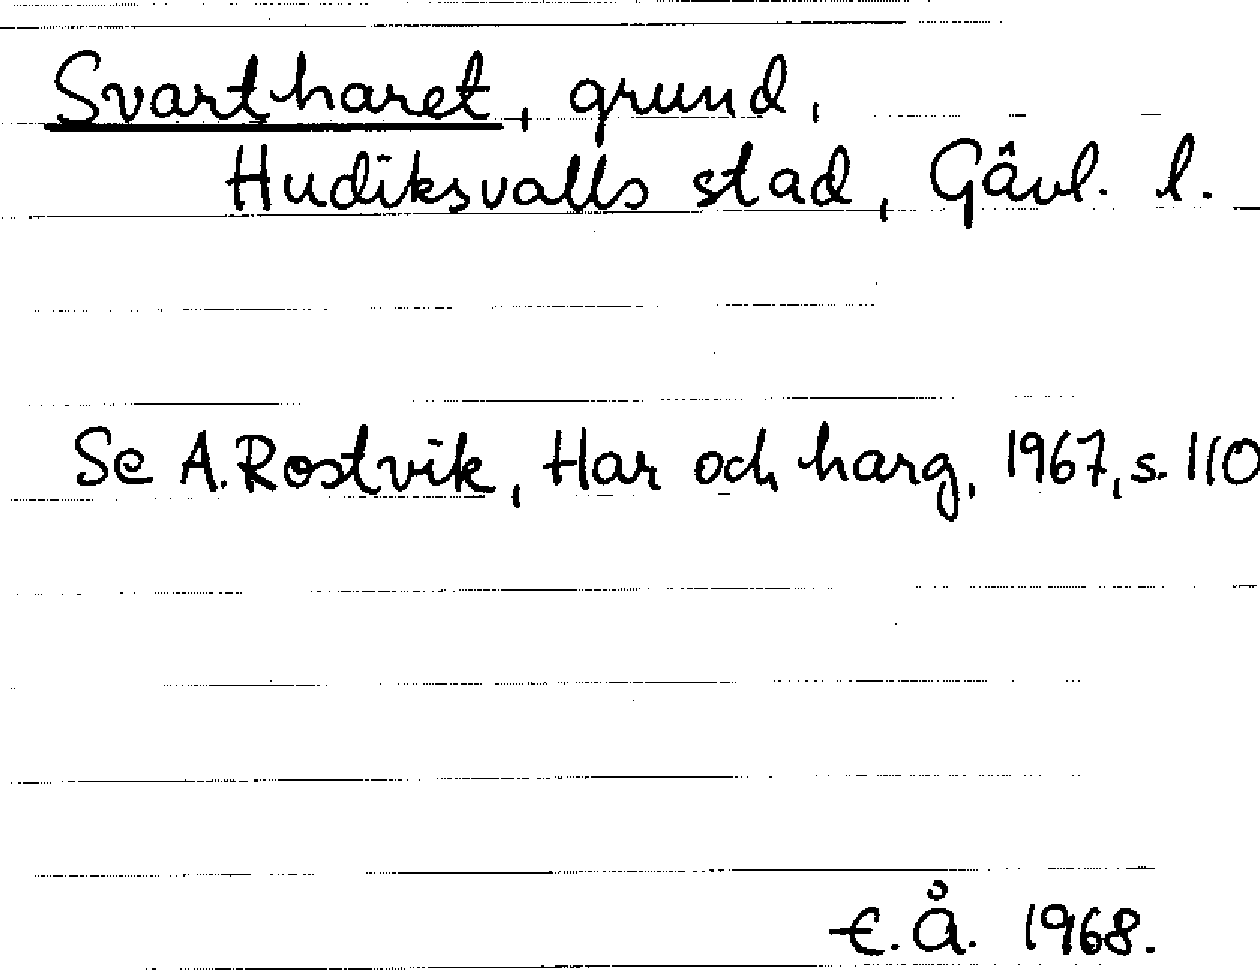 Svartharet, grund,
Hudiksvalls stad, Gävl. l.
Se A. Rostvik, Har och harg, 1967, s. 110
E.Å. 1968.